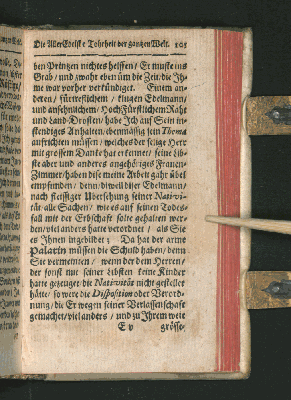 Die Aller Edelste Tohrheit der gantzen Welt. 105
ben Printzen nichtes helffen / Er muste ins
Grab / und zwahr eben üm die Zeit / die Ih-
me war vorher verkündiget. Einem an-
deren / fürtreflichem / klugen Edelmann /
und ansehnlichem / HochFürstlichem Raht
und Land-Drosten / habe Ich auf Sein in-
stendiges Anhalten / ebenmässig sein Thema
aufrichten müssen / welches der selige Herr
mit grossem Danke hat erkennet / seine Lib-
ste aber und anderes angehöriges Frauen-
Zimmer / haben dise meine Arbeit gahr übel
empfunden / denn / diweil diser Edelmann /
nach fleissiger Übersehung seiner Nativi-
tät alle Sachen / wie es auf seinen Todes-
fall mit der Erbschaft solte gehalten wer-
den / viel anders hatte verordnet / als Sie
es Ihnen ingebildet; Da hat der arme
Palatin müssen die Schuld haben / denn
Sie vermeinten / wenn der dem Herren /
der sonst mit seiner Libsten keine Kinder
hatte gezeuget die Nativität nicht gestellet
hätte / so were die Disposition oder Verord-
nung / die Er wegen seiner Verlassenschaft
gemachet / viel anders / und zu Ihrem weit
E v grösse-